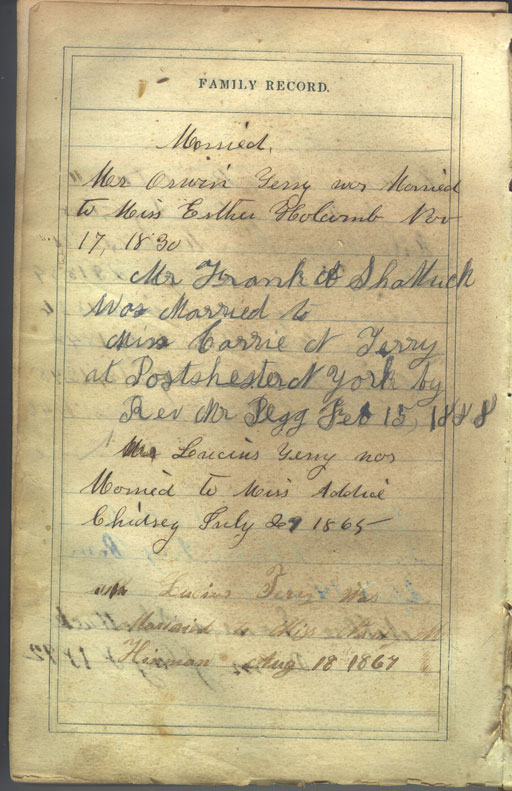 FAMILY RECORD.
Married.
Mr Orwin Terry was Married
to Miss Esther Holcomb Nov
17, 1830
Mr Frank A Shattuck
Was Married to
Miss Carrie N Terry
at Portshester N York by
Rev Mr Pegg Feb 15, 1888
Mr Lucius Terry was
Married to Miss Addie
Chidsey July 27 1865
Mr Lucius Terry was
Married to Miss M
Hinman Aug 18 1867